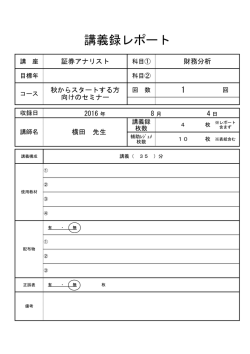 講義録レポート
講　座　証券アナリスト　科目①　財務分析
目標年　科目②
コース　秋からスタートする方向けのセミナー　回　数　1　回
収録日　2016 年　8 月　4 日
講師名　横田　先生　講義録枚数　4　枚　※レポート含まず
補助ﾚｼﾞｭﾒ枚数　10　枚　※表紙含む
講義構成　講義（ 35 ）分
使用教材
①
②
③
④
配布物
有　・　無
①
②
③
正誤表　有　・　無　枚
備考